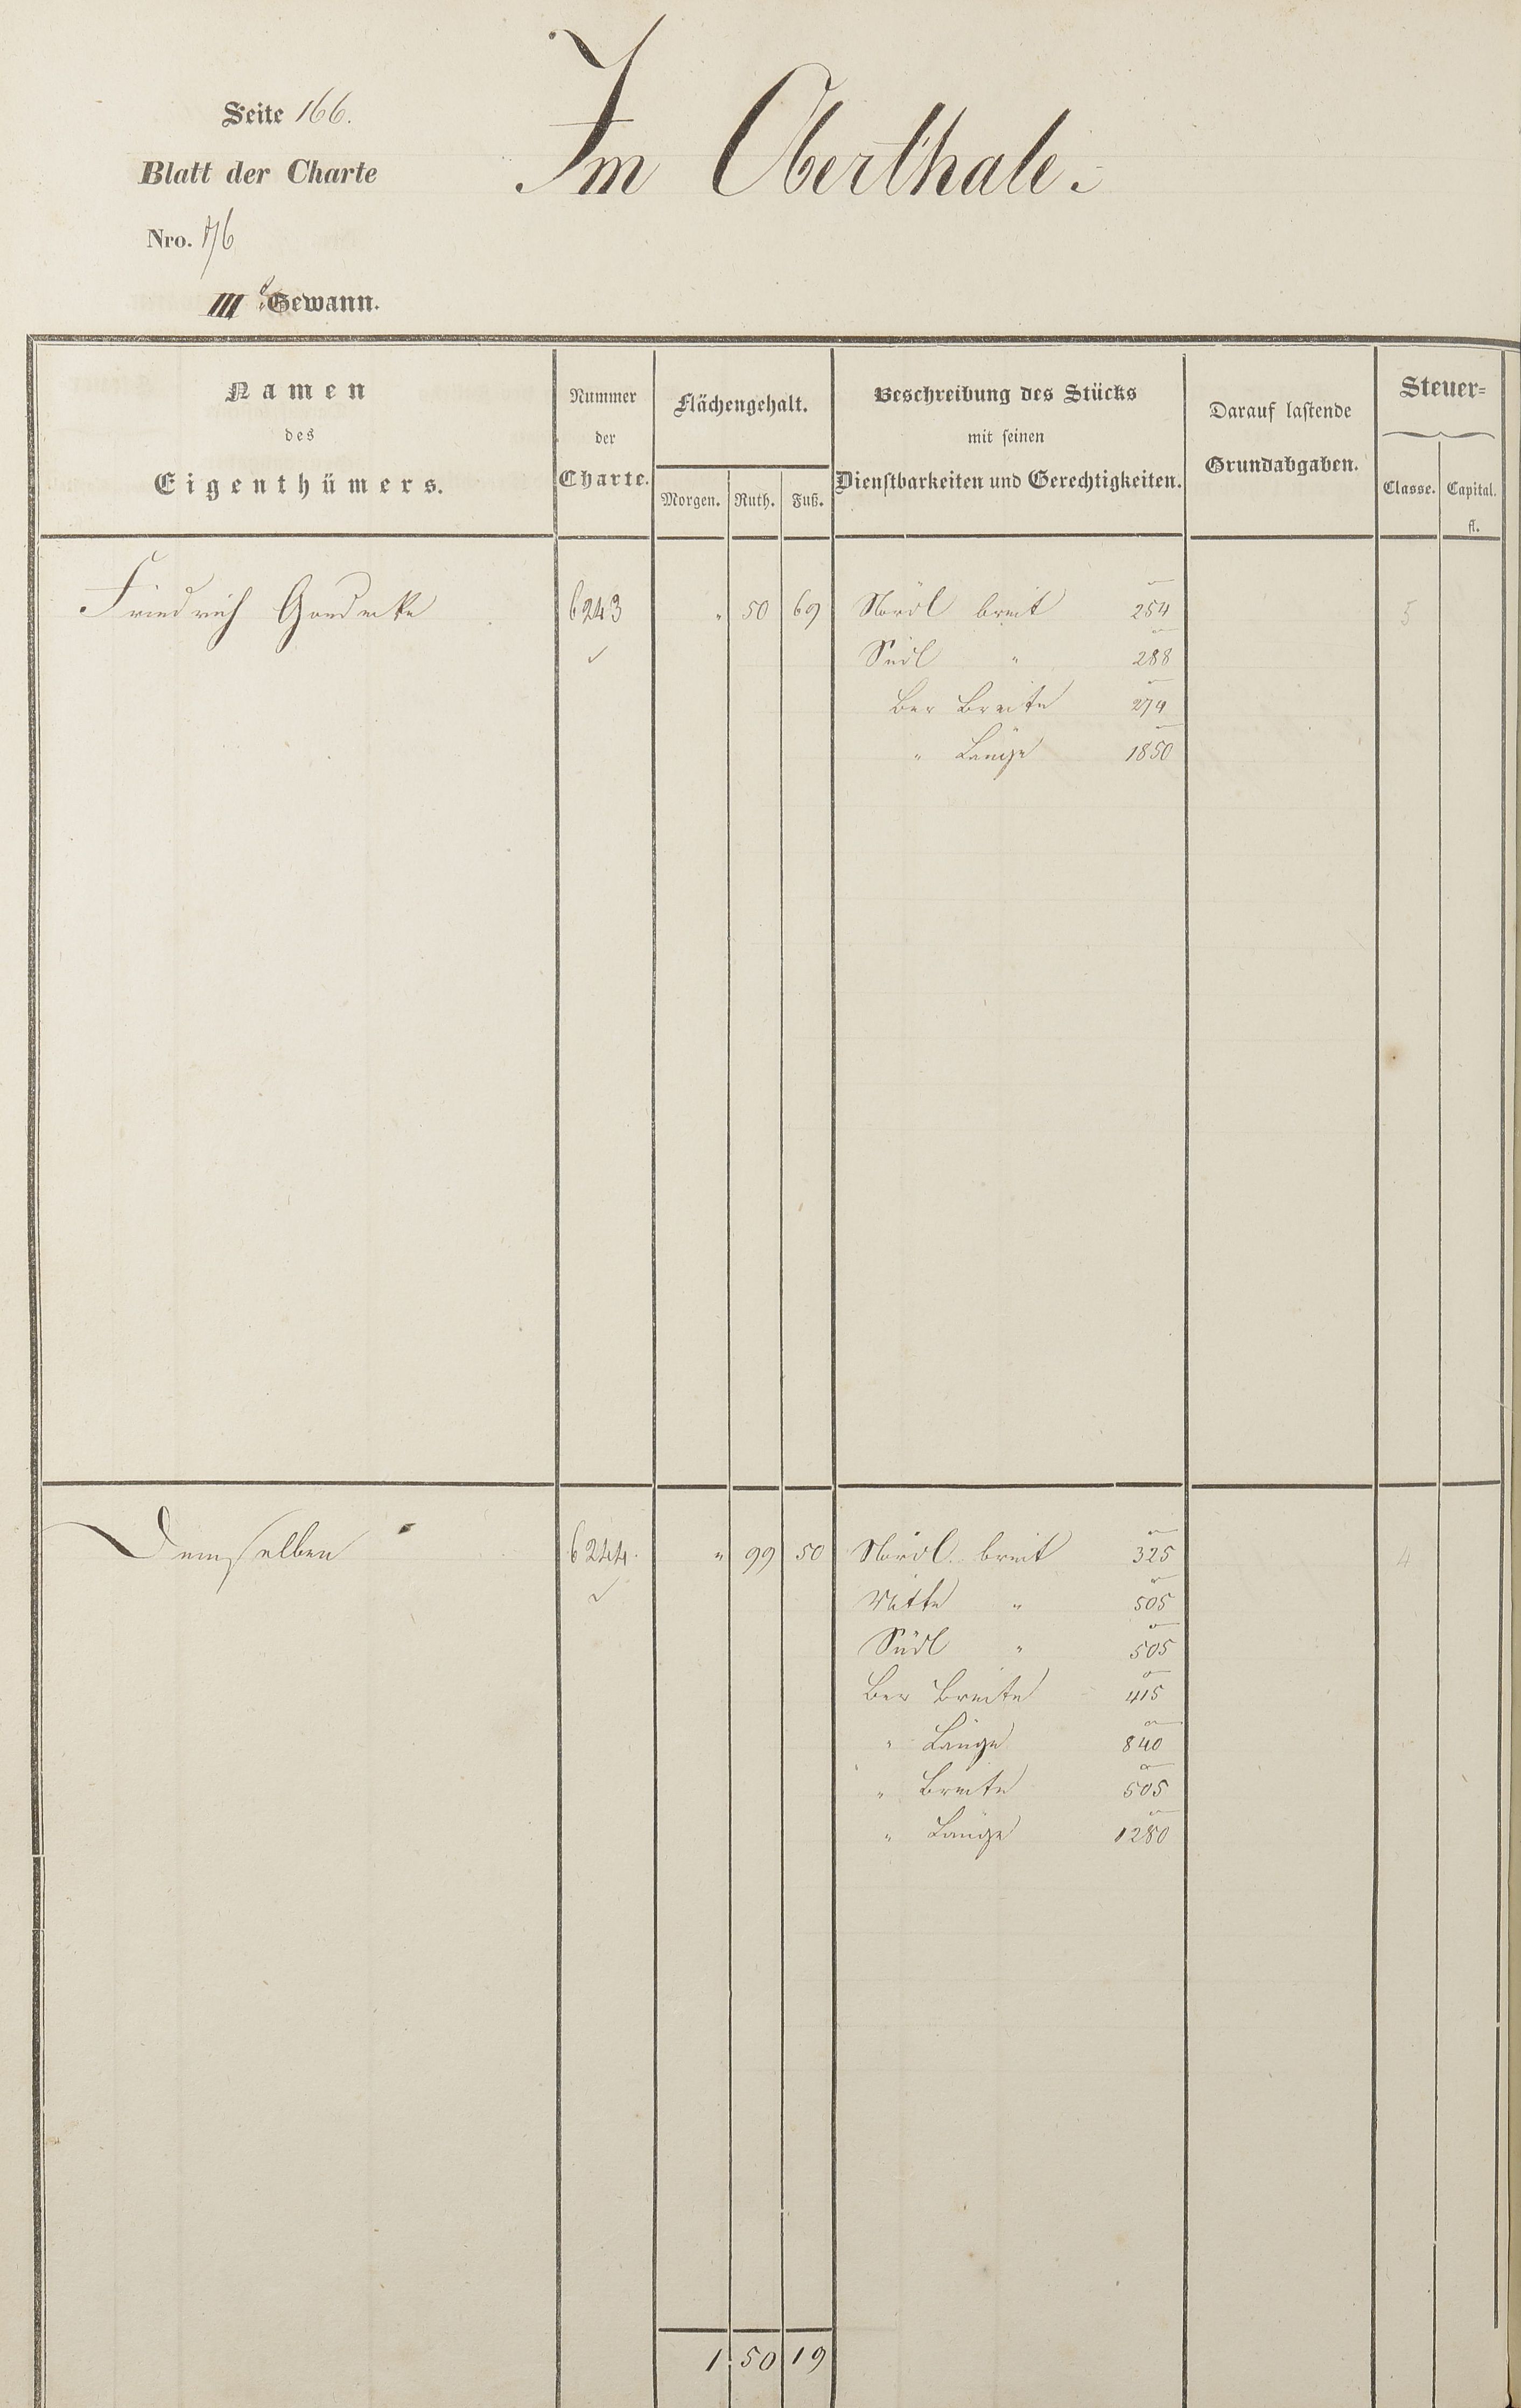 Seite 166.
Im Oberthale.
Blatt der Charte
Nro. 176
IIIte Gewann.
Namen
des
Eigenthümers.
Nummer
der
Charte.
Flächengehalt.
Morgen. Ruth. Fuß.
Beschreibung des Stücks
mit seinen
Dienstbarkeiten und Gerechtigkeiten.
Darauf lastende
Grundabgaben.
Steuer=
Classe. Capital.
fl.
Friedrich Goedecke 6243 " 50 69 Nördl breit 254 5
Südl " 288
Ber Breite 274
" Länge 1850
Demselben 6244. " 99 50 Nördl. breit 325 4
Mitte " 505
Südl " 505
Ber Breite 415
" Länge 840
" Breite 505
" Länge 1280
1 50 19